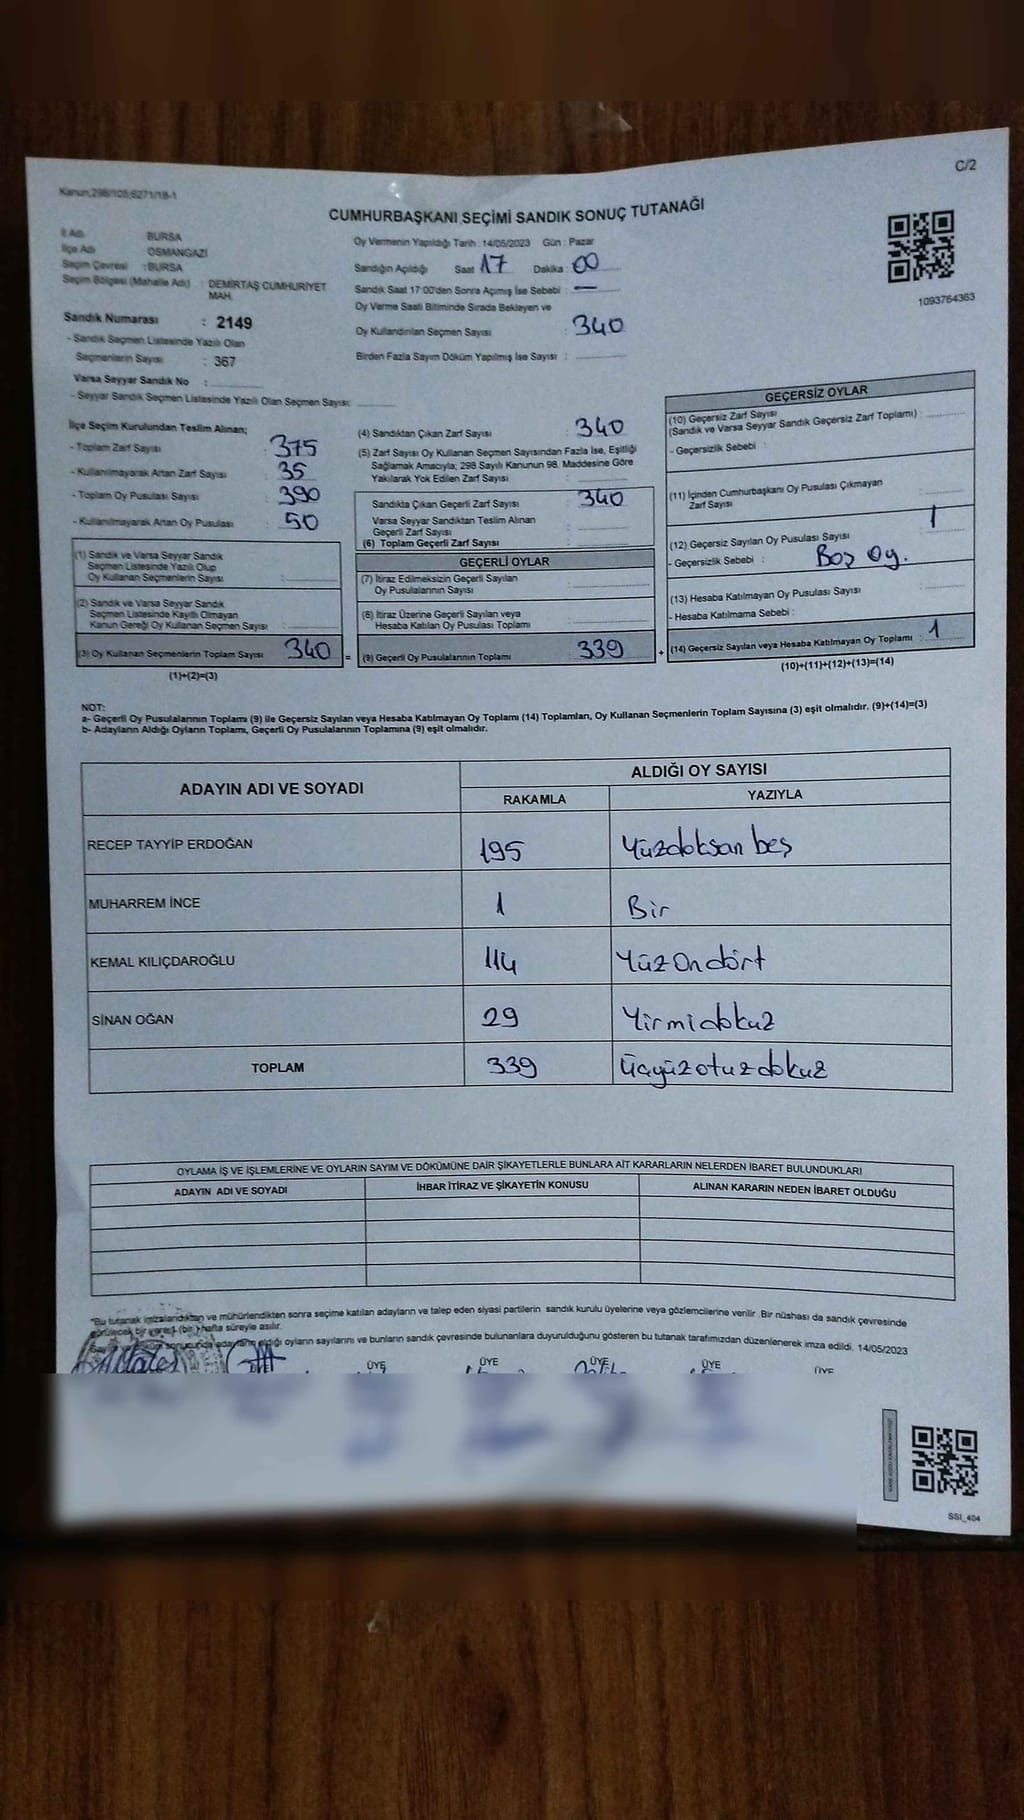 C/2
Kanun,298/105,6271/18-1
CUMHURBAŞKANI SEÇİMİ SANDIK SONUÇ TUTANAĞI
İl Adı : BURSA
İlçe Adı : OSMANGAZİ
Seçim Çevresi : BURSA
Seçim Bölgesi (Mahalle Adı) : DEMİRTAŞ CUMHURİYET
MAH.
Sandık Numarası : 2149
- Sandık Seçmen Listesinde Yazılı Olan
Seçmenlerin Sayısı : 367
Varsa Seyyar Sandık No :
- Seyyar Sandık Seçmen Listesinde Yazılı Olan Seçmen Sayısı:
Oy Vermenin Yapıldığı Tarih : 14/05/2023 Gün : Pazar
Sandığın Açıldığı Saat 17 Dakika : 00
Sandık Saat 17:00'den Sonra Açımış İse Sebebi : —
Oy Verme Saati Bitiminde Sırada Bekleyen ve
Oy Kullandırılan Seçmen Sayısı : 340
Birden Fazla Sayım Döküm Yapılmış İse Sayısı :
1093764363
İlçe Seçim Kurulundan Teslim Alınan;
- Toplam Zarf Sayısı : 375
- Kullanılmayarak Artan Zarf Sayısı : 35
- Toplam Oy Pusulası Sayısı : 390
- Kullanılmayarak Artan Oy Pusulası : 50
(1) Sandık ve Varsa Seyyar Sandık
Seçmen Listesinde Yazılı Olup
Oy Kullanan Seçmenlerin Sayısı :
(2) Sandık ve Varsa Seyyar Sandık
Seçmen Listesinde Kayıtlı Olmayan
Kanun Gereği Oy Kullanan Seçmen Sayısı :
(3) Oy Kullanan Seçmenlerin Toplam Sayısı 340 =
(1)+(2)=(3)
(4) Sandıktan Çıkan Zarf Sayısı : 340
(5) Zarf Sayısı Oy Kullanan Seçmen Sayısından Fazla İse, Eşitliği
Sağlamak Amacıyla; 298 Sayılı Kanunun 98. Maddesine Göre
Yakılarak Yok Edilen Zarf Sayısı :
Sandıkta Çıkan Geçerli Zarf Sayısı : 340
Varsa Seyyar Sandıktan Teslim Alınan
Geçerli Zarf Sayısı :
(6) Toplam Geçerli Zarf Sayısı :
GEÇERLİ OYLAR
(7) İtiraz Edilmeksizin Geçerli Sayılan
Oy Pusulalarının Sayısı :
(8) İtiraz Üzerine Geçerli Sayılan veya
Hesaba Katılan Oy Pusulası Toplamı :
(9) Geçerli Oy Pusulalarının Toplamı : 339 +
GEÇERSİZ OYLAR
(10) Geçersiz Zarf Sayısı
(Sandık ve Varsa Seyyar Sandık Geçersiz Zarf Toplamı) :
- Geçersizlik Sebebi :
(11) İçinden Cumhurbaşkanı Oy Pusulası Çıkmayan
Zarf Sayısı :
(12) Geçersiz Sayılan Oy Pusulası Sayısı : 1
- Geçersizlik Sebebi : Boş oy.
(13) Hesaba Katılmayan Oy Pusulası Sayısı :
- Hesaba Katılmama Sebebi :
(14) Geçersiz Sayılan veya Hesaba Katılmayan Oy Toplamı : 1
(10)+(11)+(12)+(13)=(14)
NOT:
a- Geçerli Oy Pusulalarının Toplamı (9) ile Geçersiz Sayılan veya Hesaba Katılmayan Oy Toplamı (14) Toplamları, Oy Kullanan Seçmenlerin Toplam Sayısına (3) eşit olmalıdır. (9)+(14)=(3)
b- Adayların Aldığı Oyların Toplamı, Geçerli Oy Pusulalarının Toplamına (9) eşit olmalıdır.
ADAYIN ADI VE SOYADI ALDIĞI OY SAYISI
RAKAMLA YAZIYLA
RECEP TAYYİP ERDOĞAN 195 Yüzdoksan beş
MUHARREM İNCE 1 Bir
KEMAL KILIÇDAROĞLU 114 Yüz Ondört
SİNAN OĞAN 29 Yirmidokuz
TOPLAM 339 Üçyüzotuzdokuz
OYLAMA İŞ VE İŞLEMLERİNE VE OYLARIN SAYIM VE DÖKÜMÜNE DAİR ŞİKAYETLERLE BUNLARA AİT KARARLARIN NELERDEN İBARET BULUNDUKLARI
ADAYIN ADI VE SOYADI İHBAR İTİRAZ VE ŞİKAYETİN KONUSU ALINAN KARARIN NEDEN İBARET OLDUĞU
*Bu tutanak imzalandıktan ve mühürlendikten sonra seçime katılan adayların ve talep eden siyasi partilerin sandık kurulu üyelerine veya gözlemcilerine verilir. Bir nüshası da sandık çevresinde
görülecek bir yere 1 (bir) hafta süreyle asılır.
sonucunda adayların aldığı oyların sayılarını ve bunların sandık çevresinde bulunanlara duyurulduğunu gösteren bu tutanak tarafımızdan düzenlenerek imza edildi. 14/05/2023
ÜYE ÜYE ÜYE ÜYE ÜYE
SSI_404